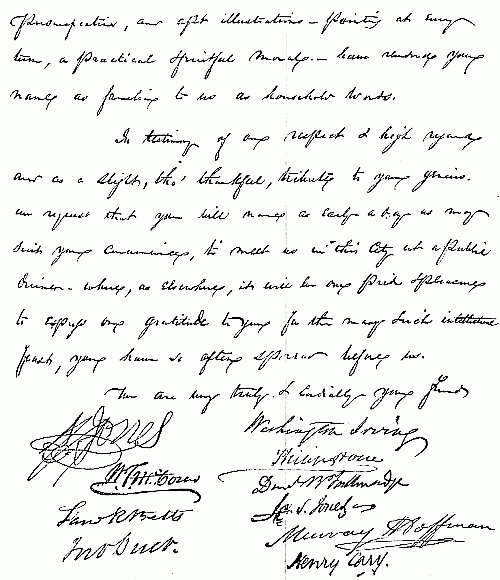 and apt illustrations – pointing at every
turn, a practical & fruitful moral – have rendered your
names as familiar to us as household words.
In testimony of our respect & high regard
and as a slight, tho' thankful, tribute to your genius.
we request that you will name as early a day as may
suit your convenience, to meet us in this City at a public
dinner – where, as elsewhere, it will be our
to express our gratitude to you for the many such intellectual
feasts, you have so often spread before us.
We are very truly & cordially your friends
Jones Washington Irving
W. T. McCoun Philip Hone
Wm
S. Jones
Murray Hoffman
Henry Cary.